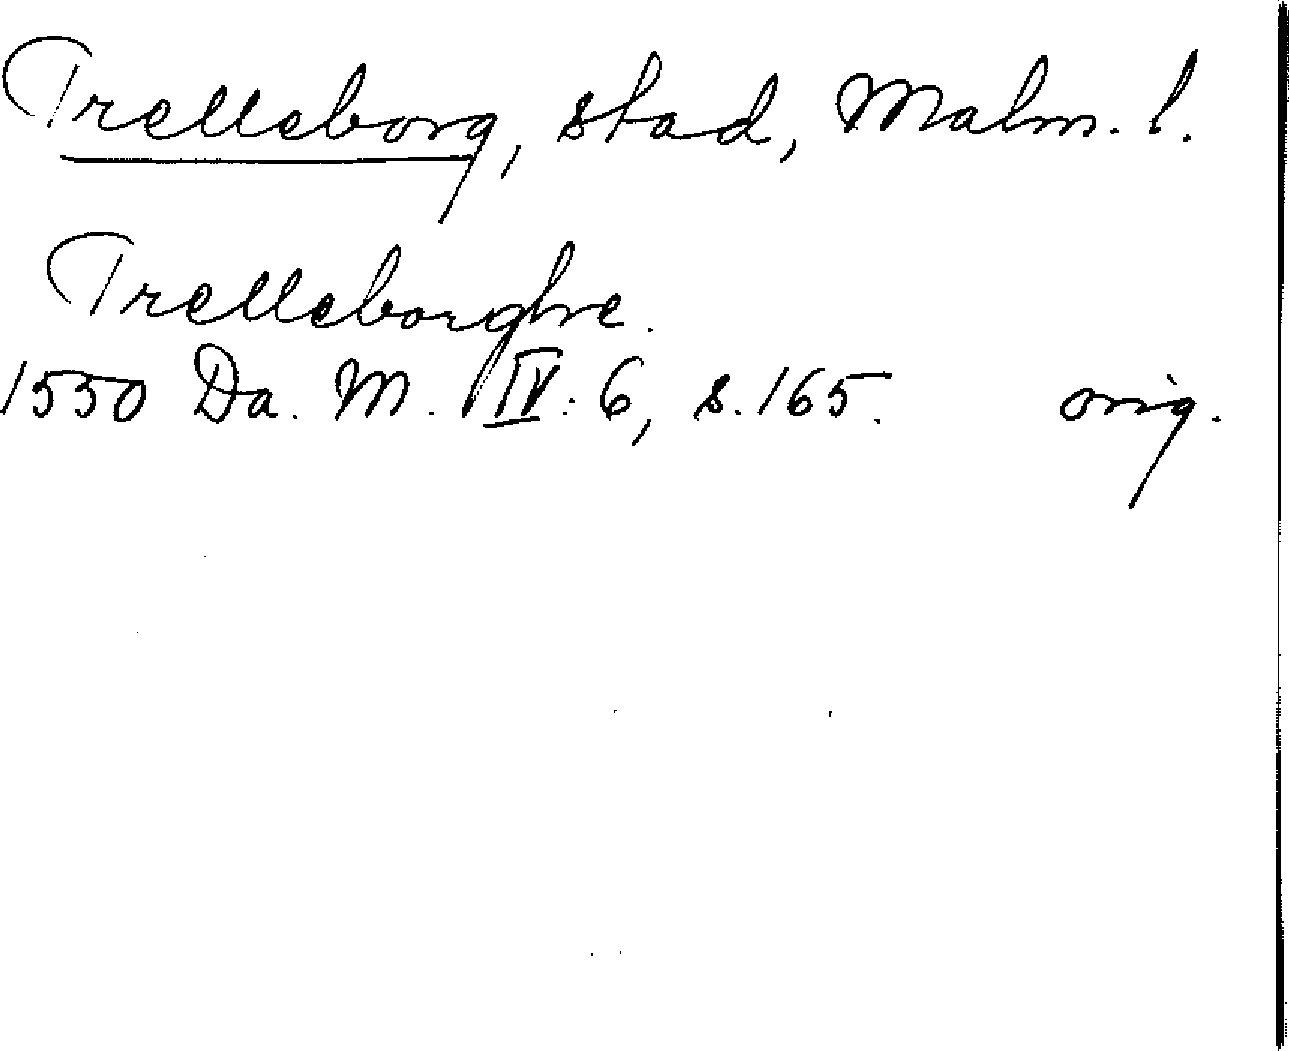 Trelleborg, stad, Malm. l.
Trelleborghe.
1550 Da. M. IV: 6, s. 165. orig.